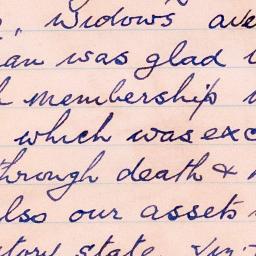 Widows ave
an was glad
membership
which was exc
through death &
also our assets
tory state.